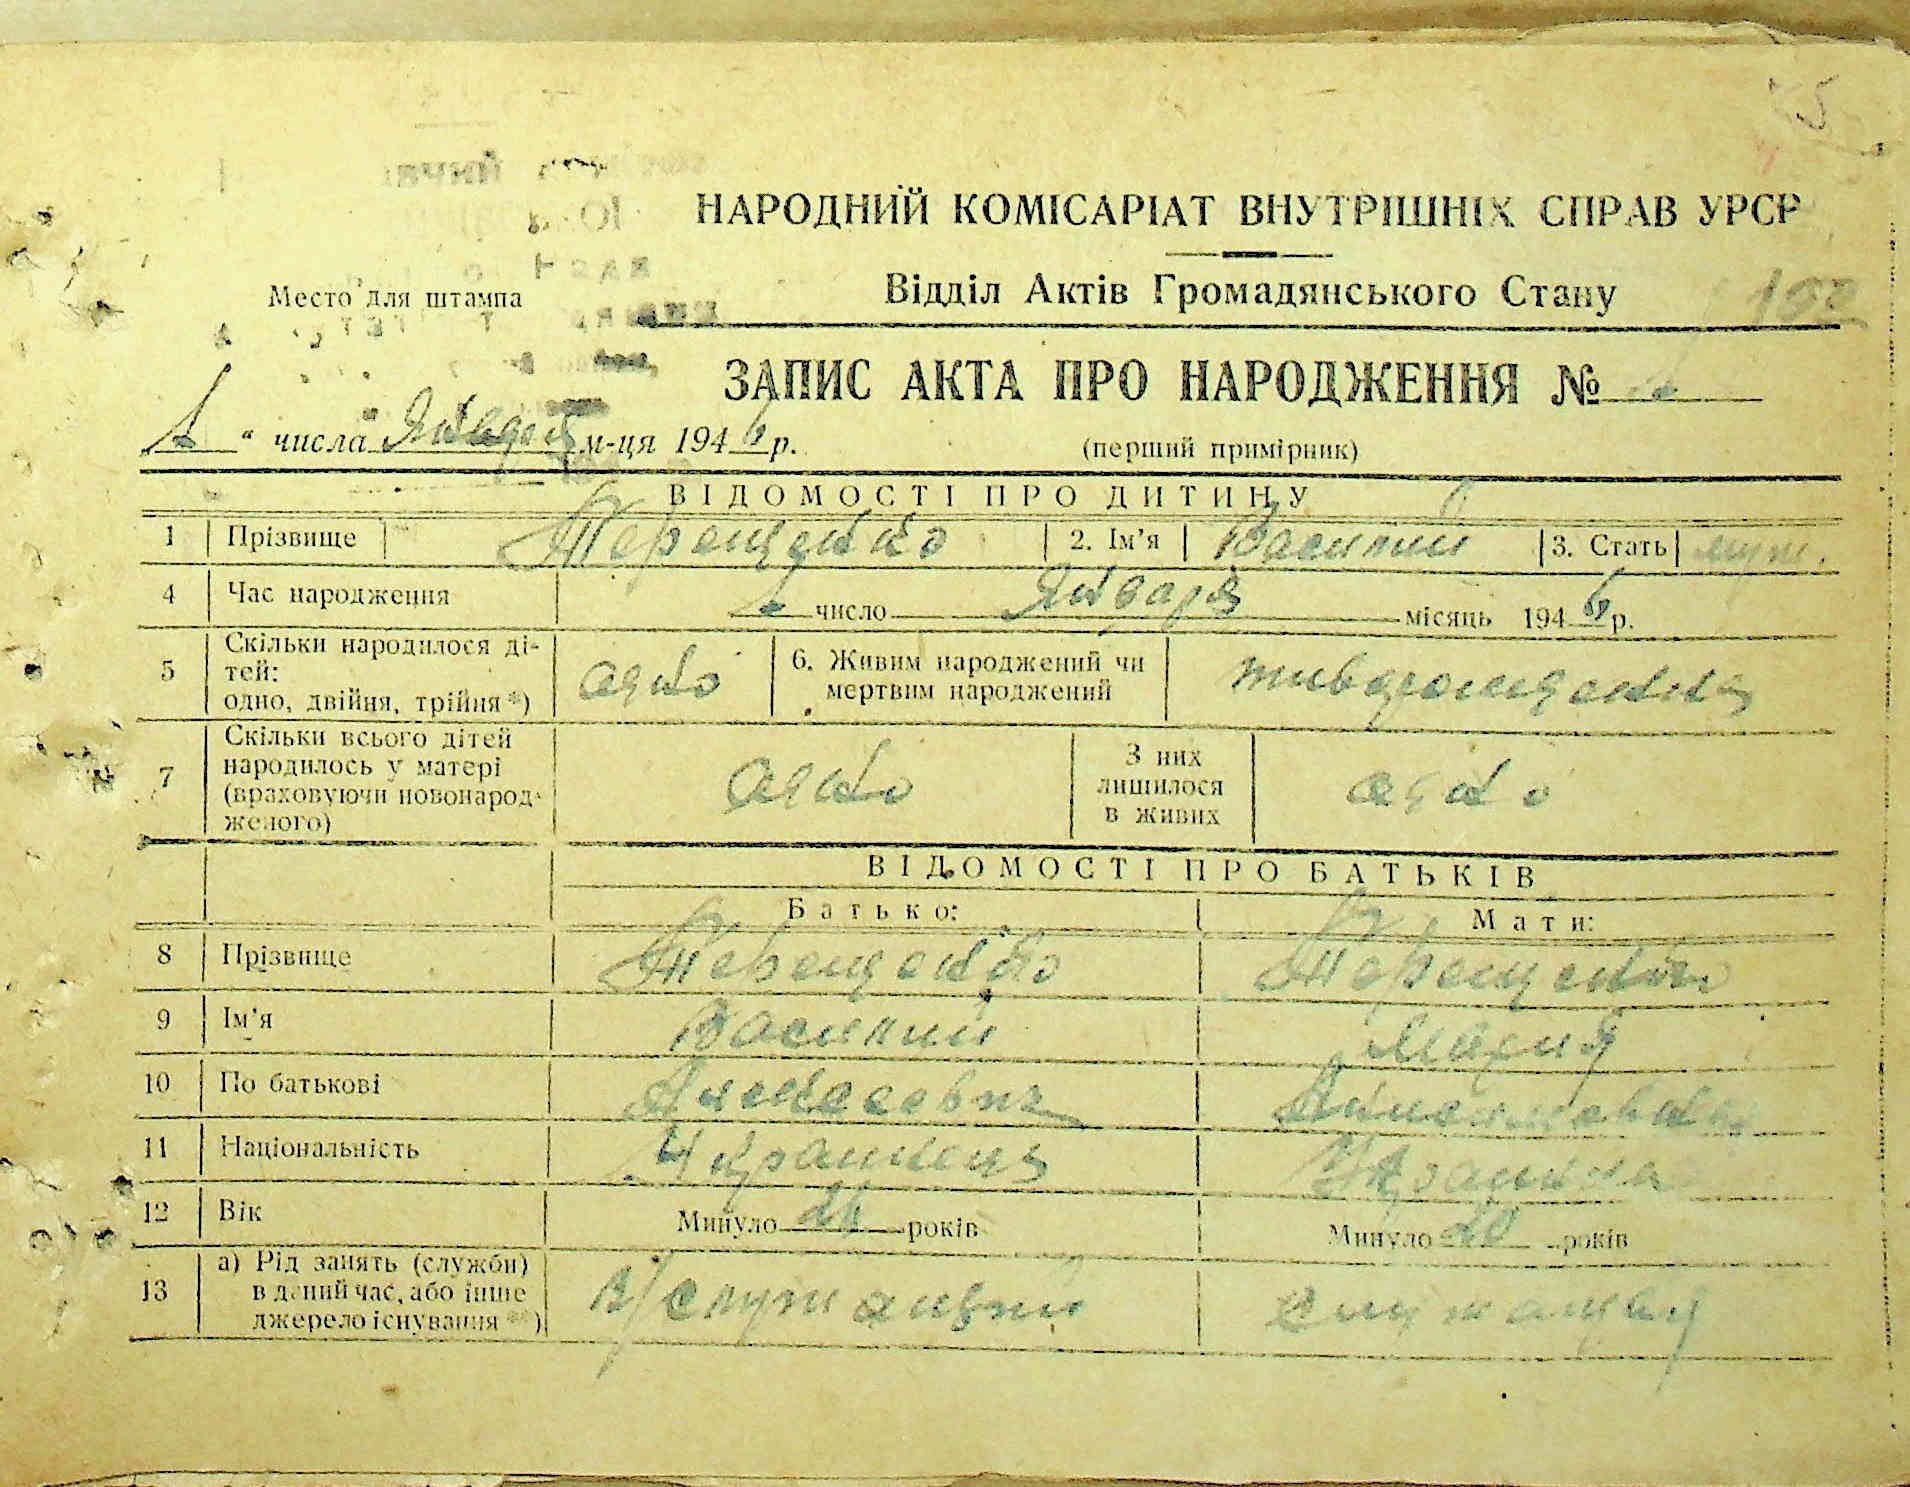 НАРОДНИЙ КОМІСАРІАТ ВНУТРІШНІХ СПРАВ УРСР
Место для штампа
Відділ Актів Громадянського Стану
102
ЗАПИС АКТА ПРО НАРОДЖЕННЯ №
" числа Января м-ця 1946 р.
(перший примірник)
ВІДОМОСТІ ПРО ДИТИНУ
1 Прізвище Терещенко 2. Ім'я Василий 3. Стать муж.
4 Час народження число Января місяць 1946 р.
5 Скільки народилося ді-
тей:
одно, двійня, трійня*) одно 6. Живим народжений чи
мертвим народжений живорожденный
7 Скільки всього дітей
народилось у матері
(враховуючи новонарод-
женого) одно З них
лишилося
в живих одно
ВІДОМОСТІ ПРО БАТЬКІВ
Батько: Мати:
8 Прізвище Терещенко Терещенко
9 Ім'я Василий Мария
10 По батькові Алексеевич
11 Національність Украинец Украинка
12 Вік Минуло 24 років Минуло 20 років
13 а) Рід занять (служби)
в даний час, або інше
джерело існування **) В/служащий служащая